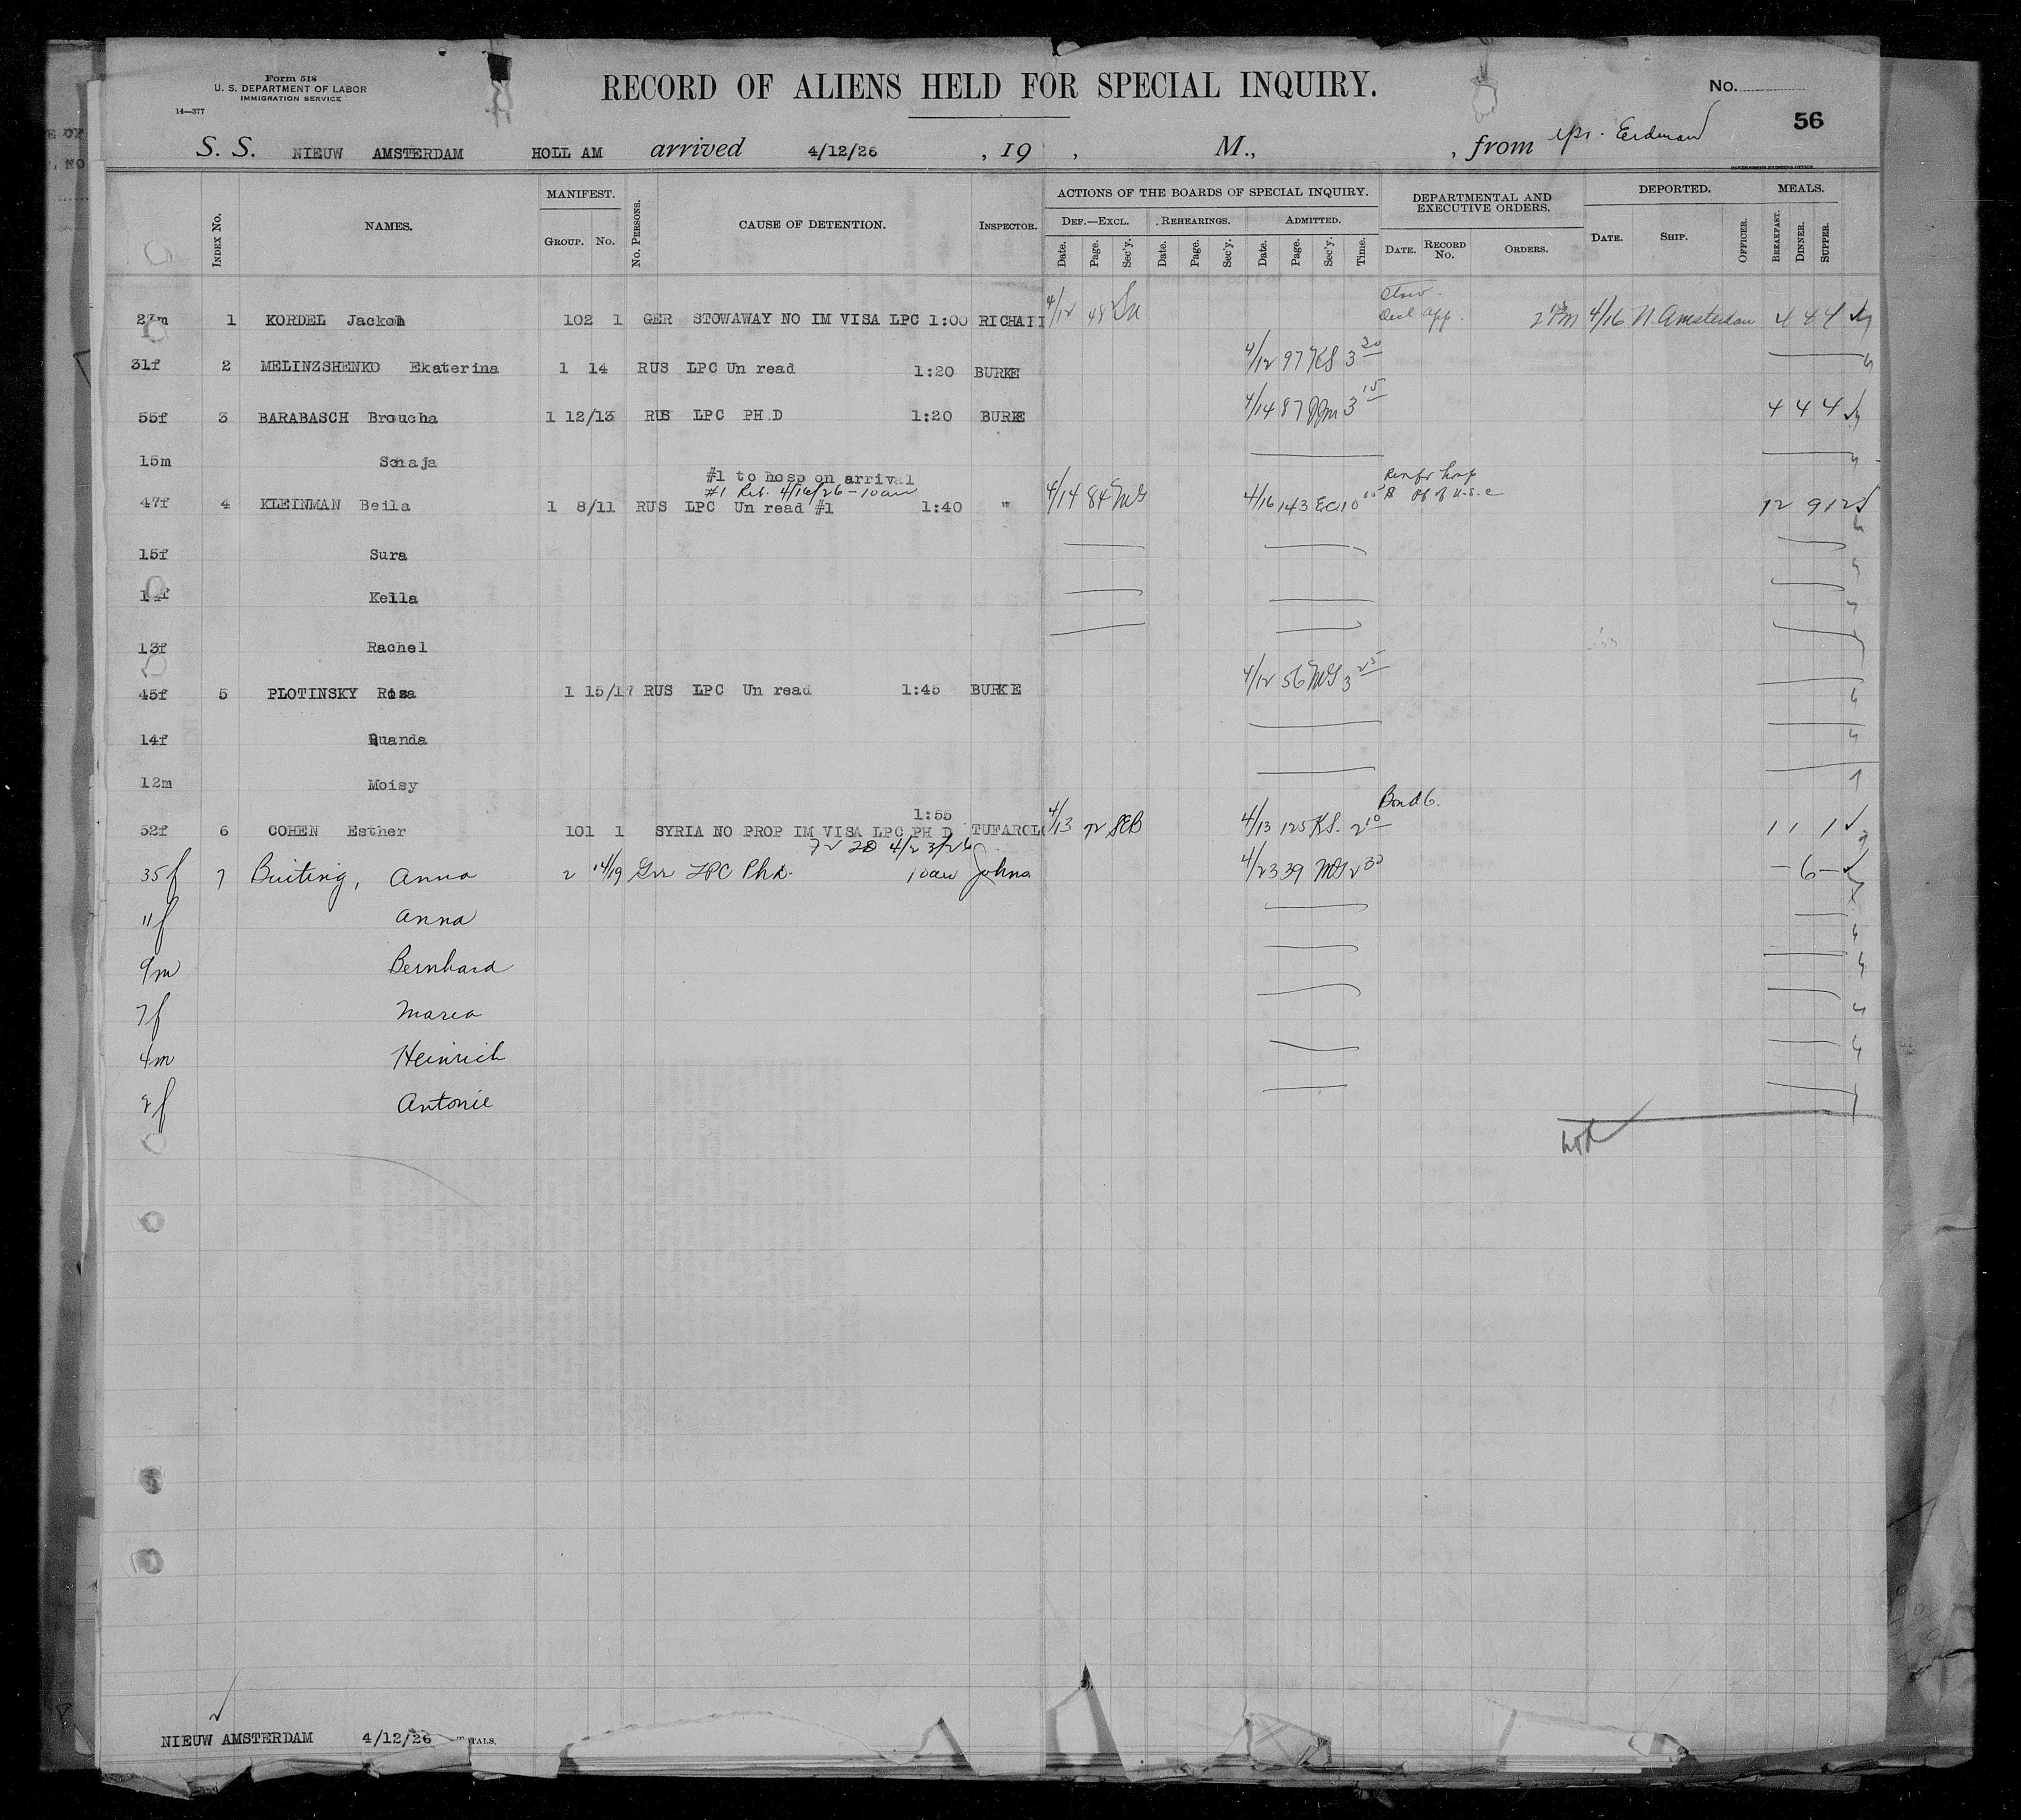 Form 518
U. S. DEPARTMENT OF LABOR
IMMIGRATION SERVICE
14—377
RECORD OF ALIENS HELD FOR SPECIAL INQUIRY.
No.
56
S. S. NIEUW AMSTERDAM HOLL AM arrived 4/12/26 , 19 , M., , from Erdman
INDEX No. NAMES. MANIFEST. GROUP. No. No. PERSONS. CAUSE OF DETENTION. INSPECTOR. ACTIONS OF THE BOARDS OF SPECIAL INQUIRY. DEF.—EXCL. Date. Page. Sec'y. REHEARINGS. Date. Page. Sec'y. ADMITTED. Date. Page. Sec'y. Time. DEPARTMENTAL AND EXECUTIVE ORDERS. DATE. RECORD No. ORDERS. DEPORTED. DATE. SHIP. OFFICER. MEALS. BREAKFAST. DINNER. SUPPER.
1 KORDEL Jackob 102 1 GER STOWAWAY NO IM VISA LPC 1:00 RICHAII 4/12 48 4/16 N. Amsterdam 4 4 4
31f 2 MELINZSHENKO Ekaterina 1 14 RUS LPC Un read 1:20 BURKE 4/12 97 KS 3 30
55f 3 BARABASCH Broucha 1 12/13 RUS LPC PH D 1:20 BURKE 4/14 87 3 15 4 4 4
15m Schaja
#1 to hosp on arrival
#1 Rel. 4/16/26 - 10am
47f 4 KLEINMAN Beila 1 8/11 RUS LPC Un read #1 1:40 " 4/14 84 MG 4/16 143 EC 10 12 9 12
15f Sura
14f Keila
13f Rachel
45f 5 PLOTINSKY Rosa 1 15/17 RUS LPC Un read 1:45 BURKE 4/12 56 MG 3 25
14f Quanda
12m Moisy
1:55
52f 6 COHEN Esther 101 1 SYRIA NO PROP IM VISA LPC PH D TUFAROLO 4/13 72 SEB 4/13 125 KS. 2 10 Bond 6. 1 1 1
4/23/26
35f 7 Buiting, Anna 2 14/19 Ger LPC Ph D. 10am Johns 4/23 39 MG 2 30 - 6 -
11f Anna
9m Bernhard
7f Maria
4m Heinrich
2f Antonie
NIEUW AMSTERDAM 4/12/26 TOTALS.